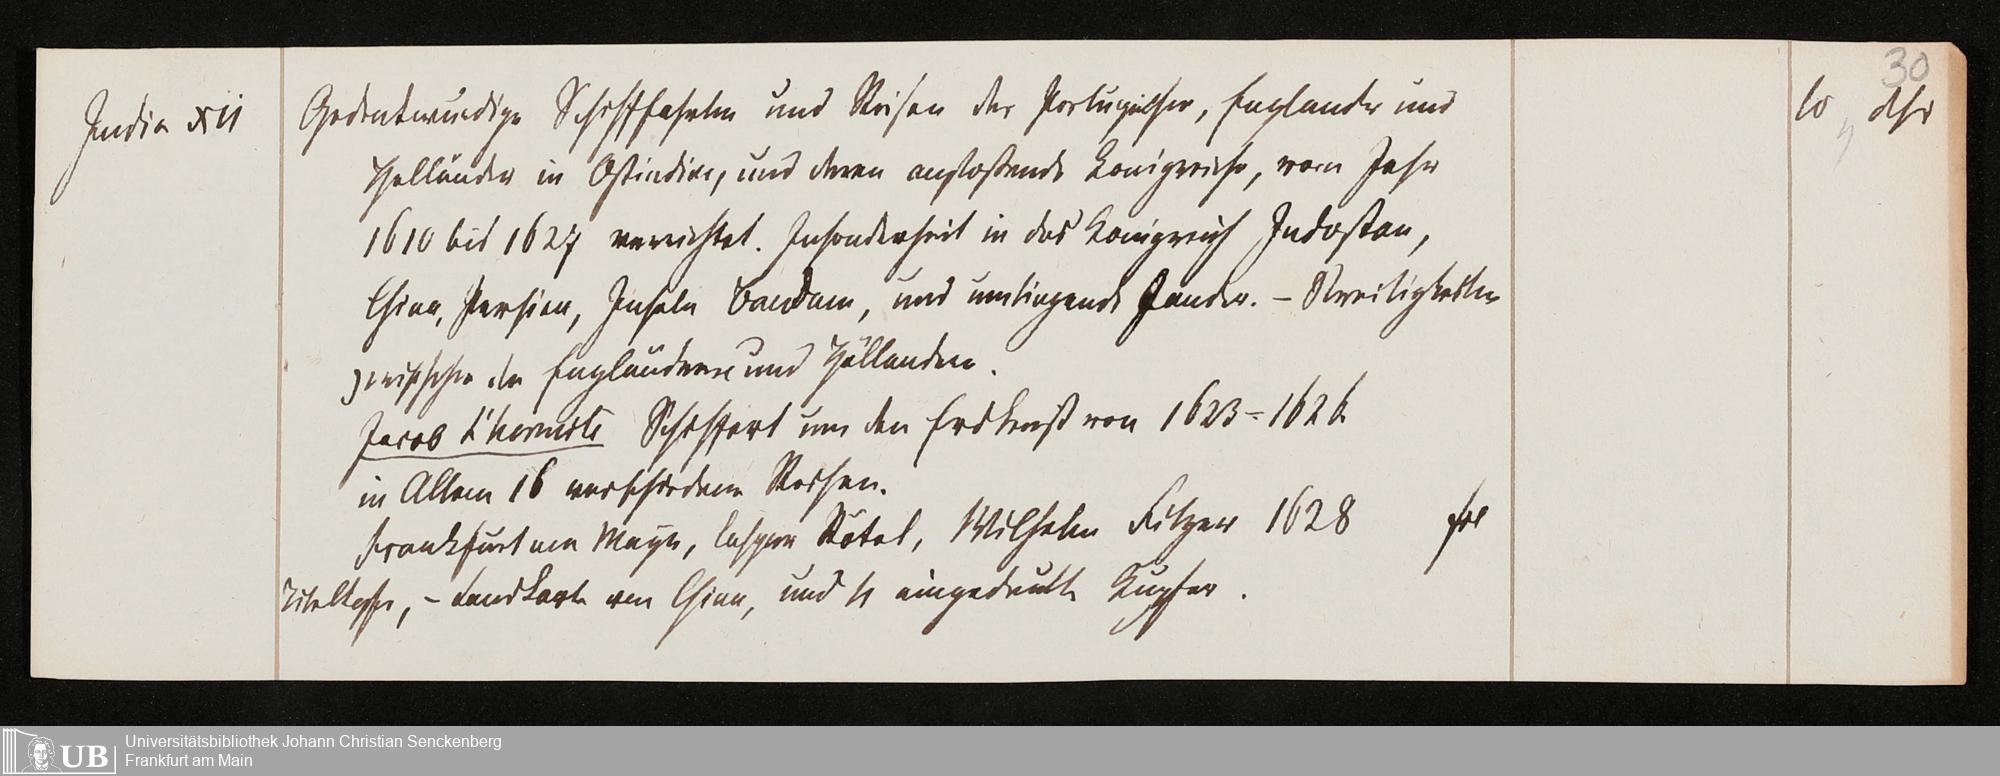 30
India XII
Gedenkwürdige Schifffahrten und Reisen der Portugiesen, Englander und
Holländer in Ostindien, und deren anstoßende Konigreiche, vom Jahr
1610 bis 1627 verrichtet. Insonderheit in das Konigreich Indostan,
China, Persien, Inseln Bandam, und umliegende Lander. – Streitigkeiten
zwischen den Engländeren und Höllanderen.
Jacob L'hermite Schiffart um den Erdkreiß von 1623=1626
in Allem 16 verschiedene Reisen.
Frankfurt am Mayn, Caspar Rötel, Wilhelm Fitzer 1628 fol
Titelkupfer, – Landkarte von China, und 11 eingedruckte Kupfer.
Universitätsbibliothek Johann Christian Senckenberg
Frankfurt am Main
UB